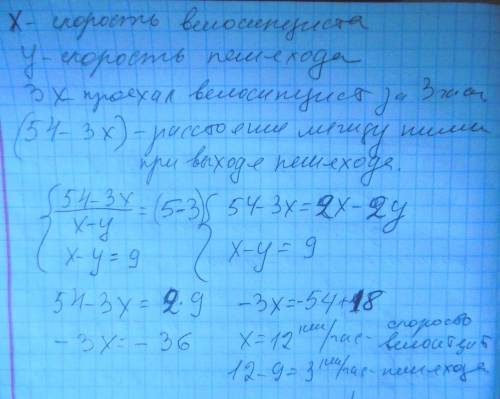 x - скорость велосипедиста
y - скорость пешехода
3x проехал велосипедист за 3 часа
(54-3x) - расстояние между ними
при выходе пешехода.
{ (54-3x)/(x-y) = (5-3) { 54-3x=2x-2y
x-y=9 x-y=9
54-3x=2·9 -3x=-54+18
-3x=-36 x=12 км/час - скорость велосипедист
12-9=3 км/час - пешехода